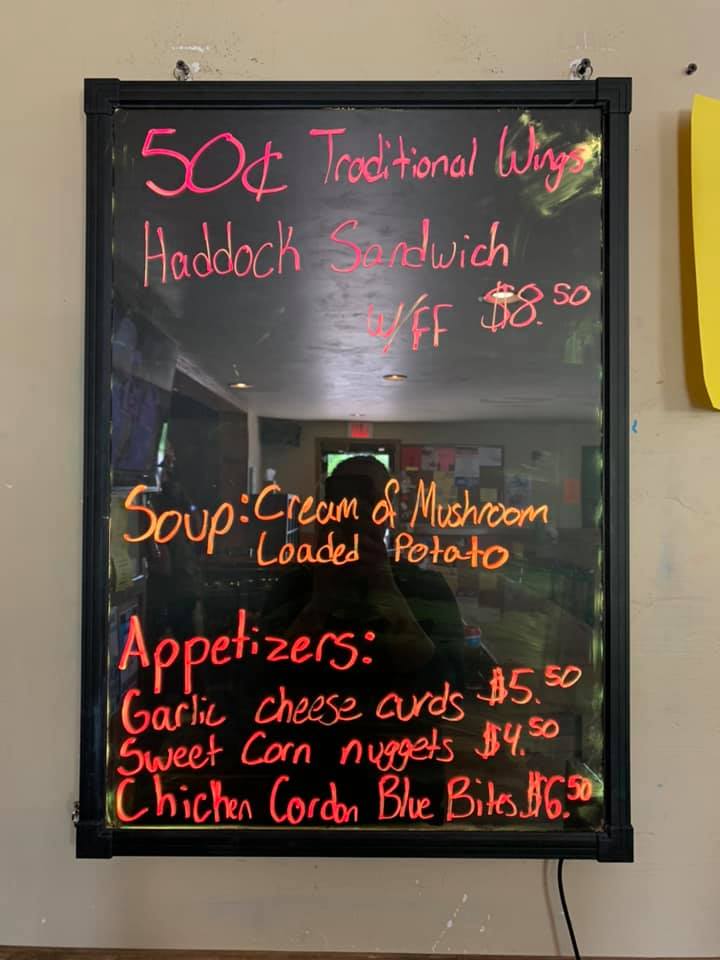 50¢ Traditional Wings
Haddock Sandwich
W/FF $8.50
Soup: Cream of Mushroom
Loaded Potato
Appetizers:
Garlic cheese curds $5.50
Sweet Corn nuggets $4.50
Chicken Cordon Blue Bites $6.50